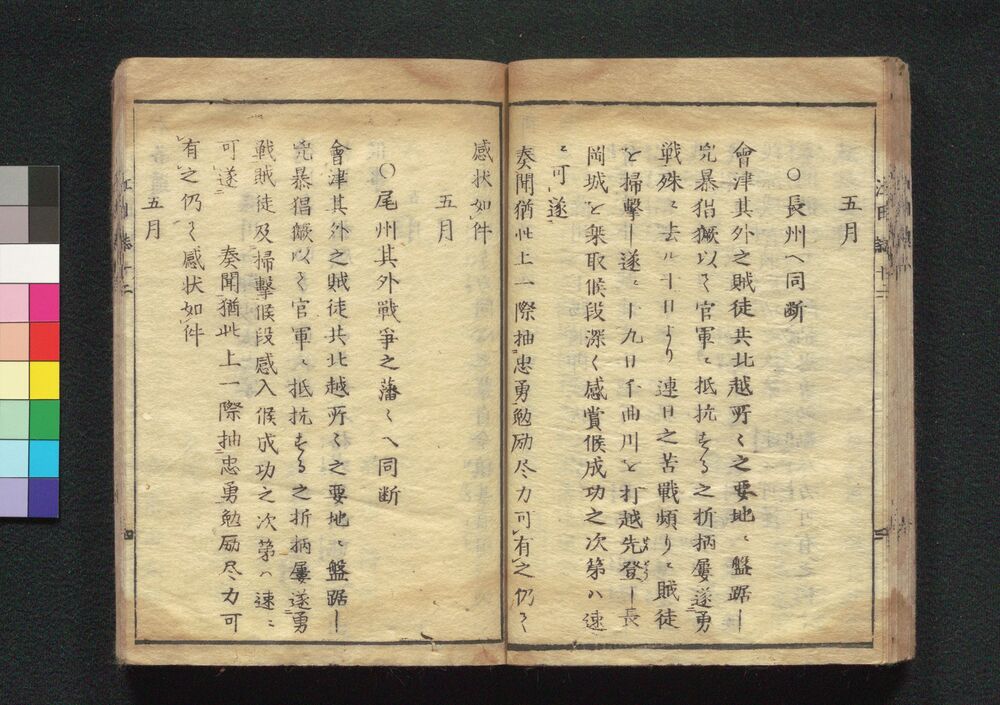 五月
○長州へ同断
會津其外之賊徒共北越所々之要地ニ盤踞シ
兇暴猖獗以て官軍ニ抵抗する之折柄屡遂勇
戦殊ニ去ル十日より連日之苦戦頻りニ賊徒
を掃撃シ遂ニ十九日千曲川を打越先登シ長
岡城を乗取候段深く感賞候成功之次第ハ速
ニ可遂
奏聞猶此上一際抽忠勇勉励尽力可有之仍て
感状如件
五月
○尾州其外戦争之藩々へ同断
會津其外之賊徒共北越所々之要地ニ盤踞シ
兇暴猖獗以て官軍ニ抵抗する之折柄屡遂勇
戦賊徒及掃撃候段感入候成功之次第ハ速ニ
可遂
奏聞猶此上一際抽忠勇勉励尽力可
有之仍て感状如件
五月